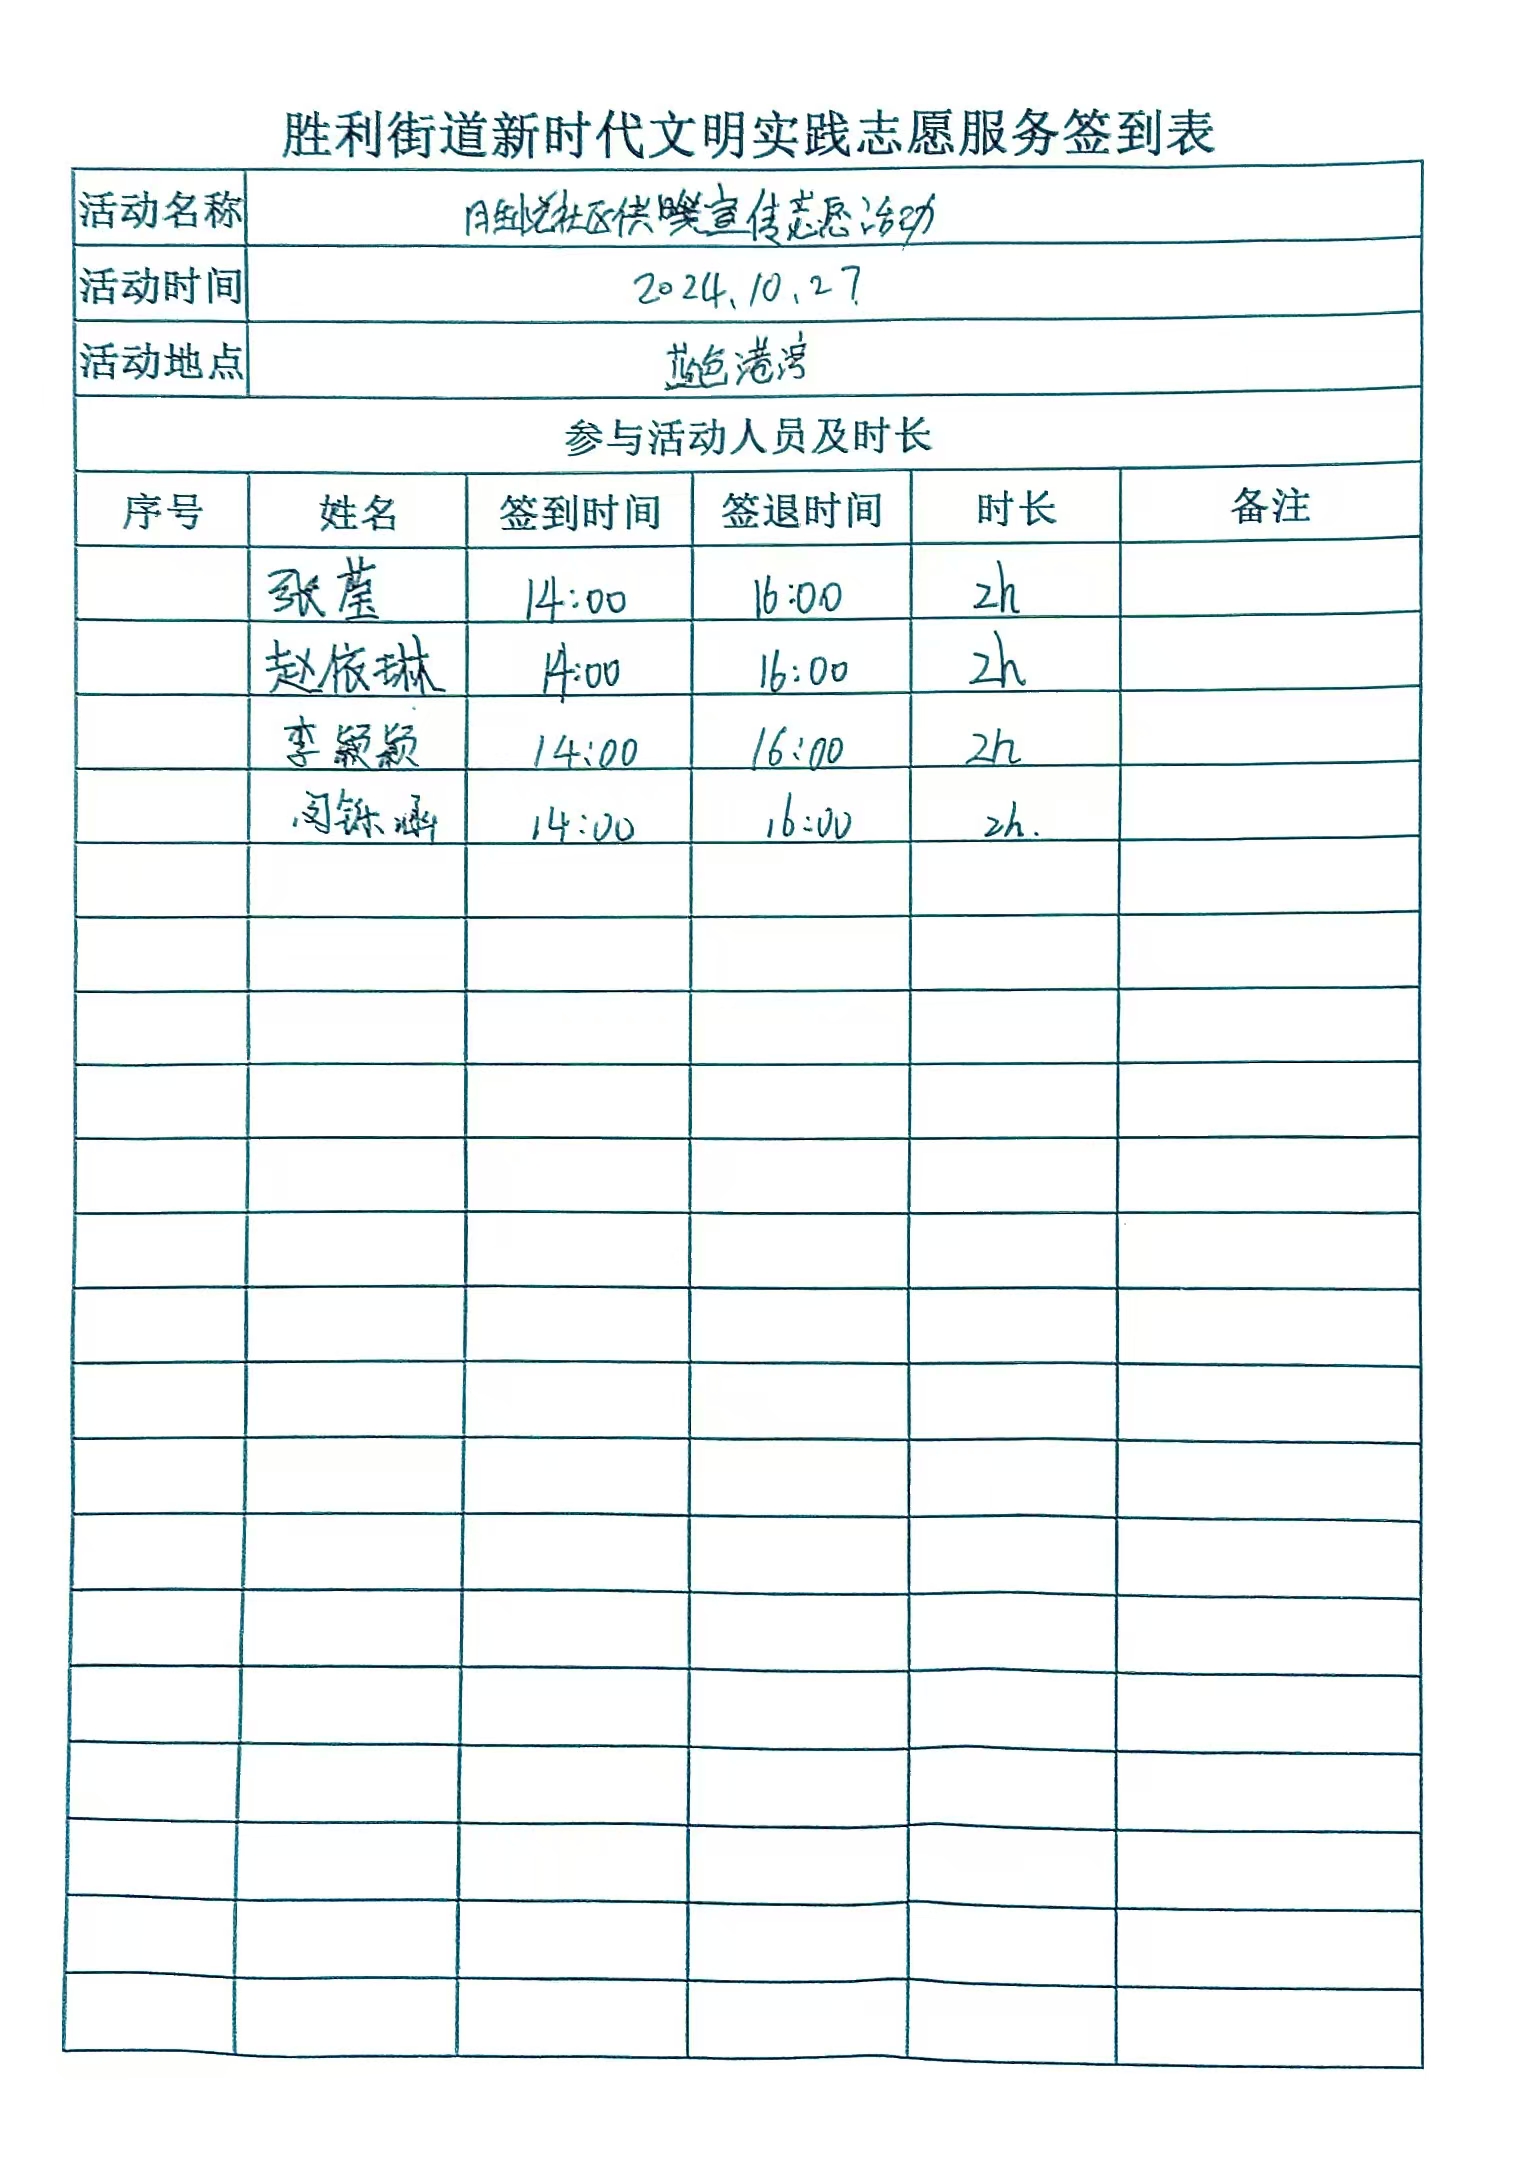 胜利街道新时代文明实践志愿服务签到表
活动名称 社区供暖宣传志愿活动
活动时间 2024.10.27
活动地点 蓝色港湾
参与活动人员及时长
序号 姓名 签到时间 签退时间 时长 备注
张莹 14:00 16:00 2h
赵依琳 14:00 16:00 2h
李颖颖 14:00 16:00 2h
闵铄涵 14:00 16:00 2h.